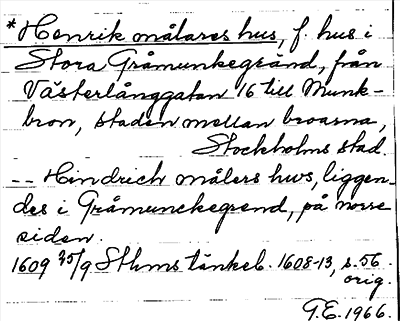 *Henrik målares hus, f. hus i
Stora Gråmunkegränd, från
Västerlånggatan 16 till Munk-
bron, staden mellan broarna,
Stockholms stad.
-- Hindrich målers hws, liggen-
des i Gråmunckegrend, på norre
siden.
1609 25/9 Sthms tänkeb. 1608-13, s. 56.
orig.
G.E. 1966.